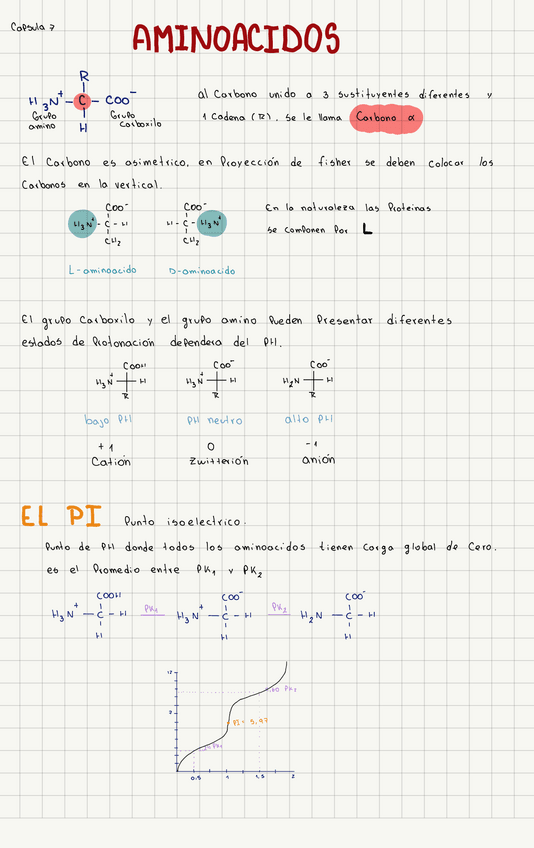 Capsula 7
AMINOACIDOS
R
H3N+ – C – COO-
Grupo amino
Grupo Carboxilo
H
al Carbono unido a 3 sustituyentes diferentes y
1 Cadena (R), se le llama Carbono α
El Carbono es asimetrico, en Proyección de fisher se deben colocar los
Carbonos en la vertical.
COO- COO-
H3N+ - C - H H - C - H3N+
CH2 CH2
L-aminoacido D-aminoacido
En la naturaleza las Proteinas
se componen Por L
El grupo Carboxilo y el grupo amino Pueden Presentar diferentes
estados de Protonación dependera del PH.
COOH COO- COO-
H3N+ H H3N+ H H2N H
R R R
bajo PH PH neutro alto PH
+1 0 -1
Catión Zwitterión anión
EL PI Punto isoelectrico.
Punto de PH donde todos los aminoacidos tienen Carga global de Cero.
es el Promedio entre PK1 y PK2
COOH COO- COO-
H3N+ – C – H PK1 H3N+ – C – H PK2 H2N – C – H
H H H
PK2
PI= 5,97
PK1
0,5 1 1,5 2